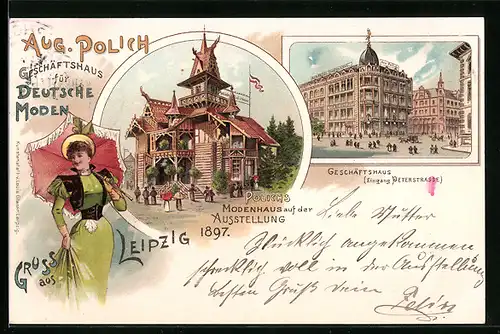 AUG. POLICH
GESCHÄFTSHAUS
für
DEUTSCHE
MODEN
GESCHÄFTSHAUS
(Eingang PETERSTRASSE)
POLICHS
MODENHAUS auf der
AUSSTELLUNG
LEIPZIG 1897.
GRUSS
aus
Liebe Mutter
Glücklich angekommen
schrecklich voll in der Ausstellung
besten Gruß Dein